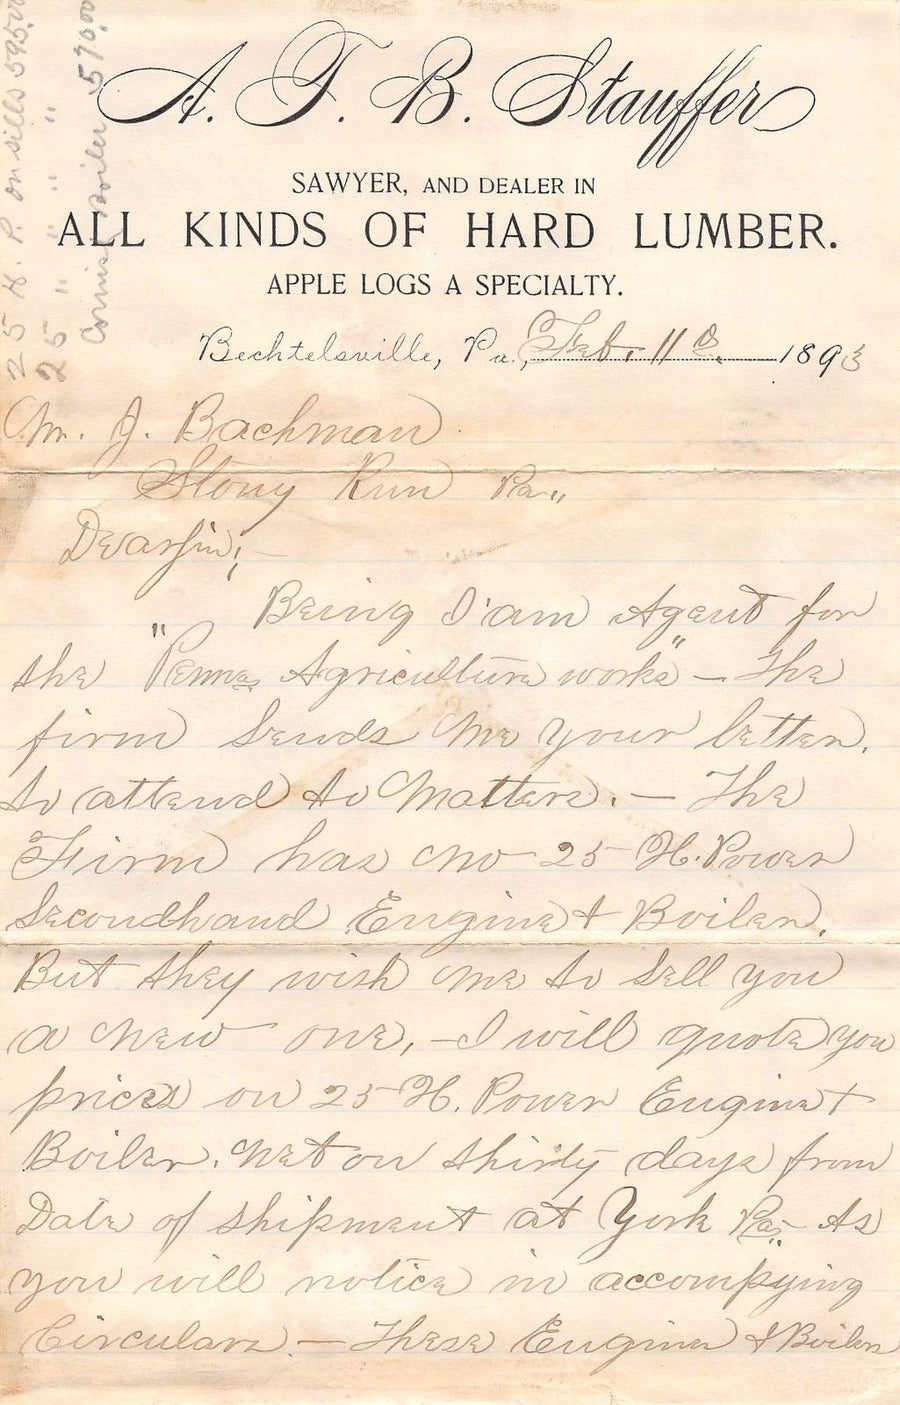 A. F. B. Stauffer
SAWYER, AND DEALER IN
ALL KINDS OF HARD LUMBER.
APPLE LOGS A SPECIALTY.
Bechtelsville, Pa., Feb. 11th 1893
25 H. P. on sills 595.00
25 " " " "
Cornish Boiler 570.00
Mr. J. Bachman
Stony Run Pa.,
Dear Sir;—
Being I'am Agent for
the "Penna Agriculture works" – The
firm sends me your letter.
to attend to Matters. – The
Firm has no 25 H. Power
Secondhand Engine & Boiler.
But they wish me to sell you
a new one, – I will quote you
prices on 25 H. Power Engine &
Boiler. Net on thirty days from
Date of shipment at York Pa. As
you will notice in accompying
Circulars – These Engine & Boilers